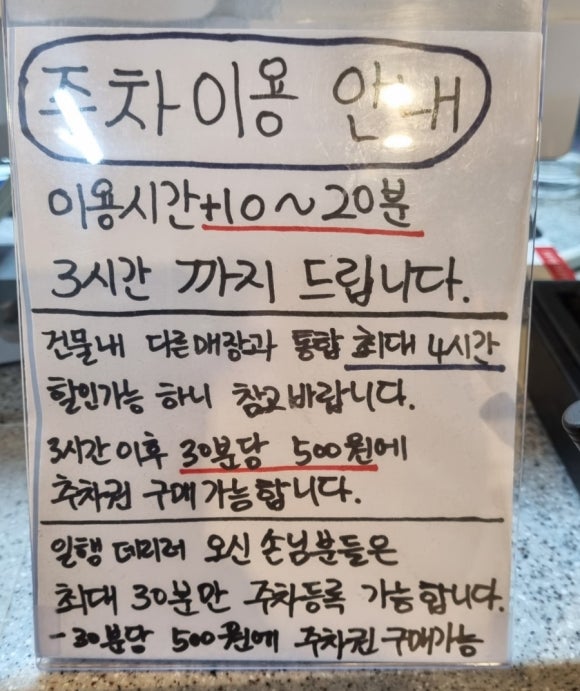 주차이용 안내
이용시간+10~20분
3시간 까지 드립니다.
건물내 다른매장과 통합 최대 4시간
할인가능 하니 참고바랍니다.
3시간 이후 30분당 500원에
추차권 구매가능합니다.
일행 데리러 오신 손님분들은
최대 30분만 주차등록 가능합니다.
-30분당 500원에 주차권구매가능